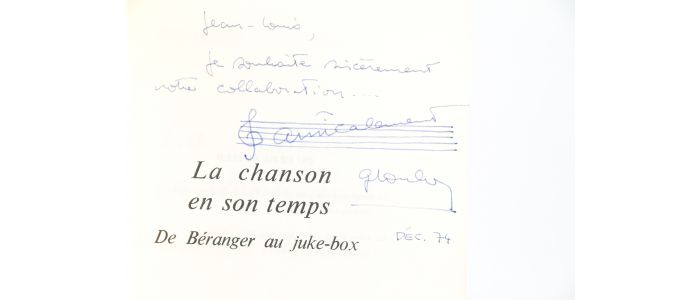 Jean-Louis,
je souhaite sincèrement
notre collaboration....
amicalement
La chanson
en son temps
De Béranger au juke-box
DÉC. 74